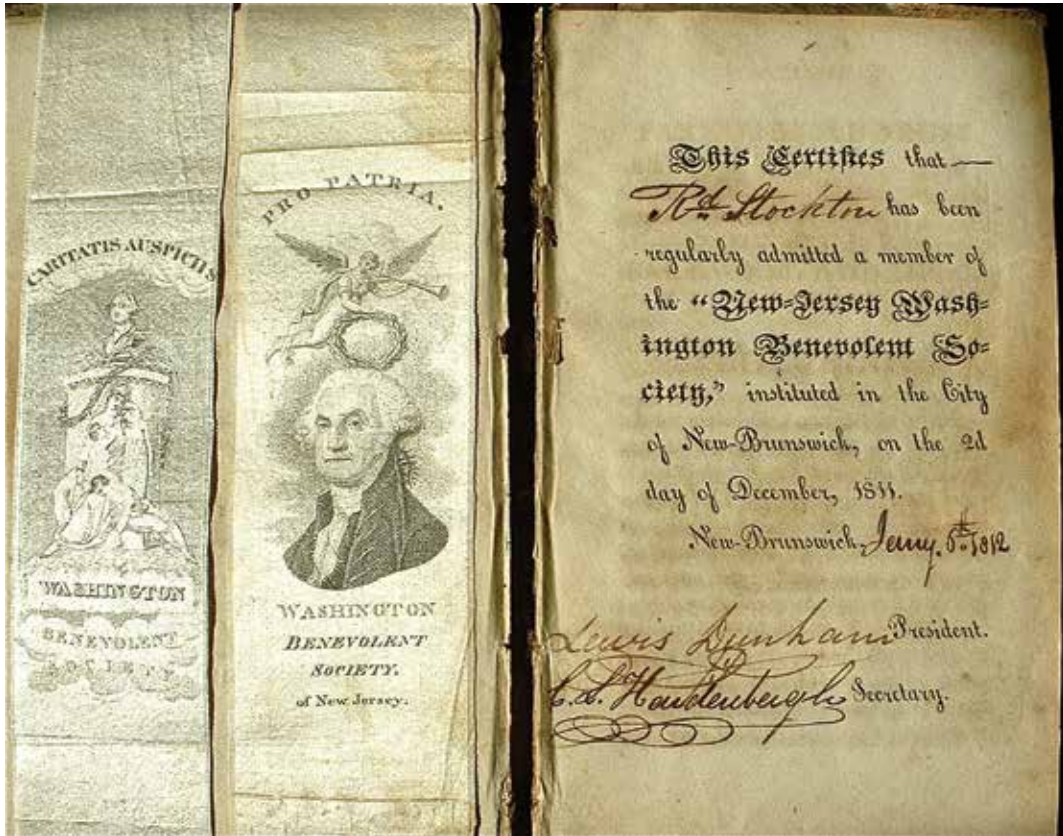 CARITATIS AUSPICIIS
WASHINGTON
BENEVOLENT
SOCIETY
PRO PATRIA.
WASHINGTON
BENEVOLENT
SOCIETY.
of New Jersey.
This Certifies that
Rd. Stockton has been
regularly admitted a member of
the "New-Jersey Wash-
ington Benevolent So-
ciety," instituted in the City
of New-Brunswick, on the 2d
day of December, 1811.
New-Brunswick, Jany. 6th 1812
Lewis Dunham President.
C. L. Hardenbergh Secretary.